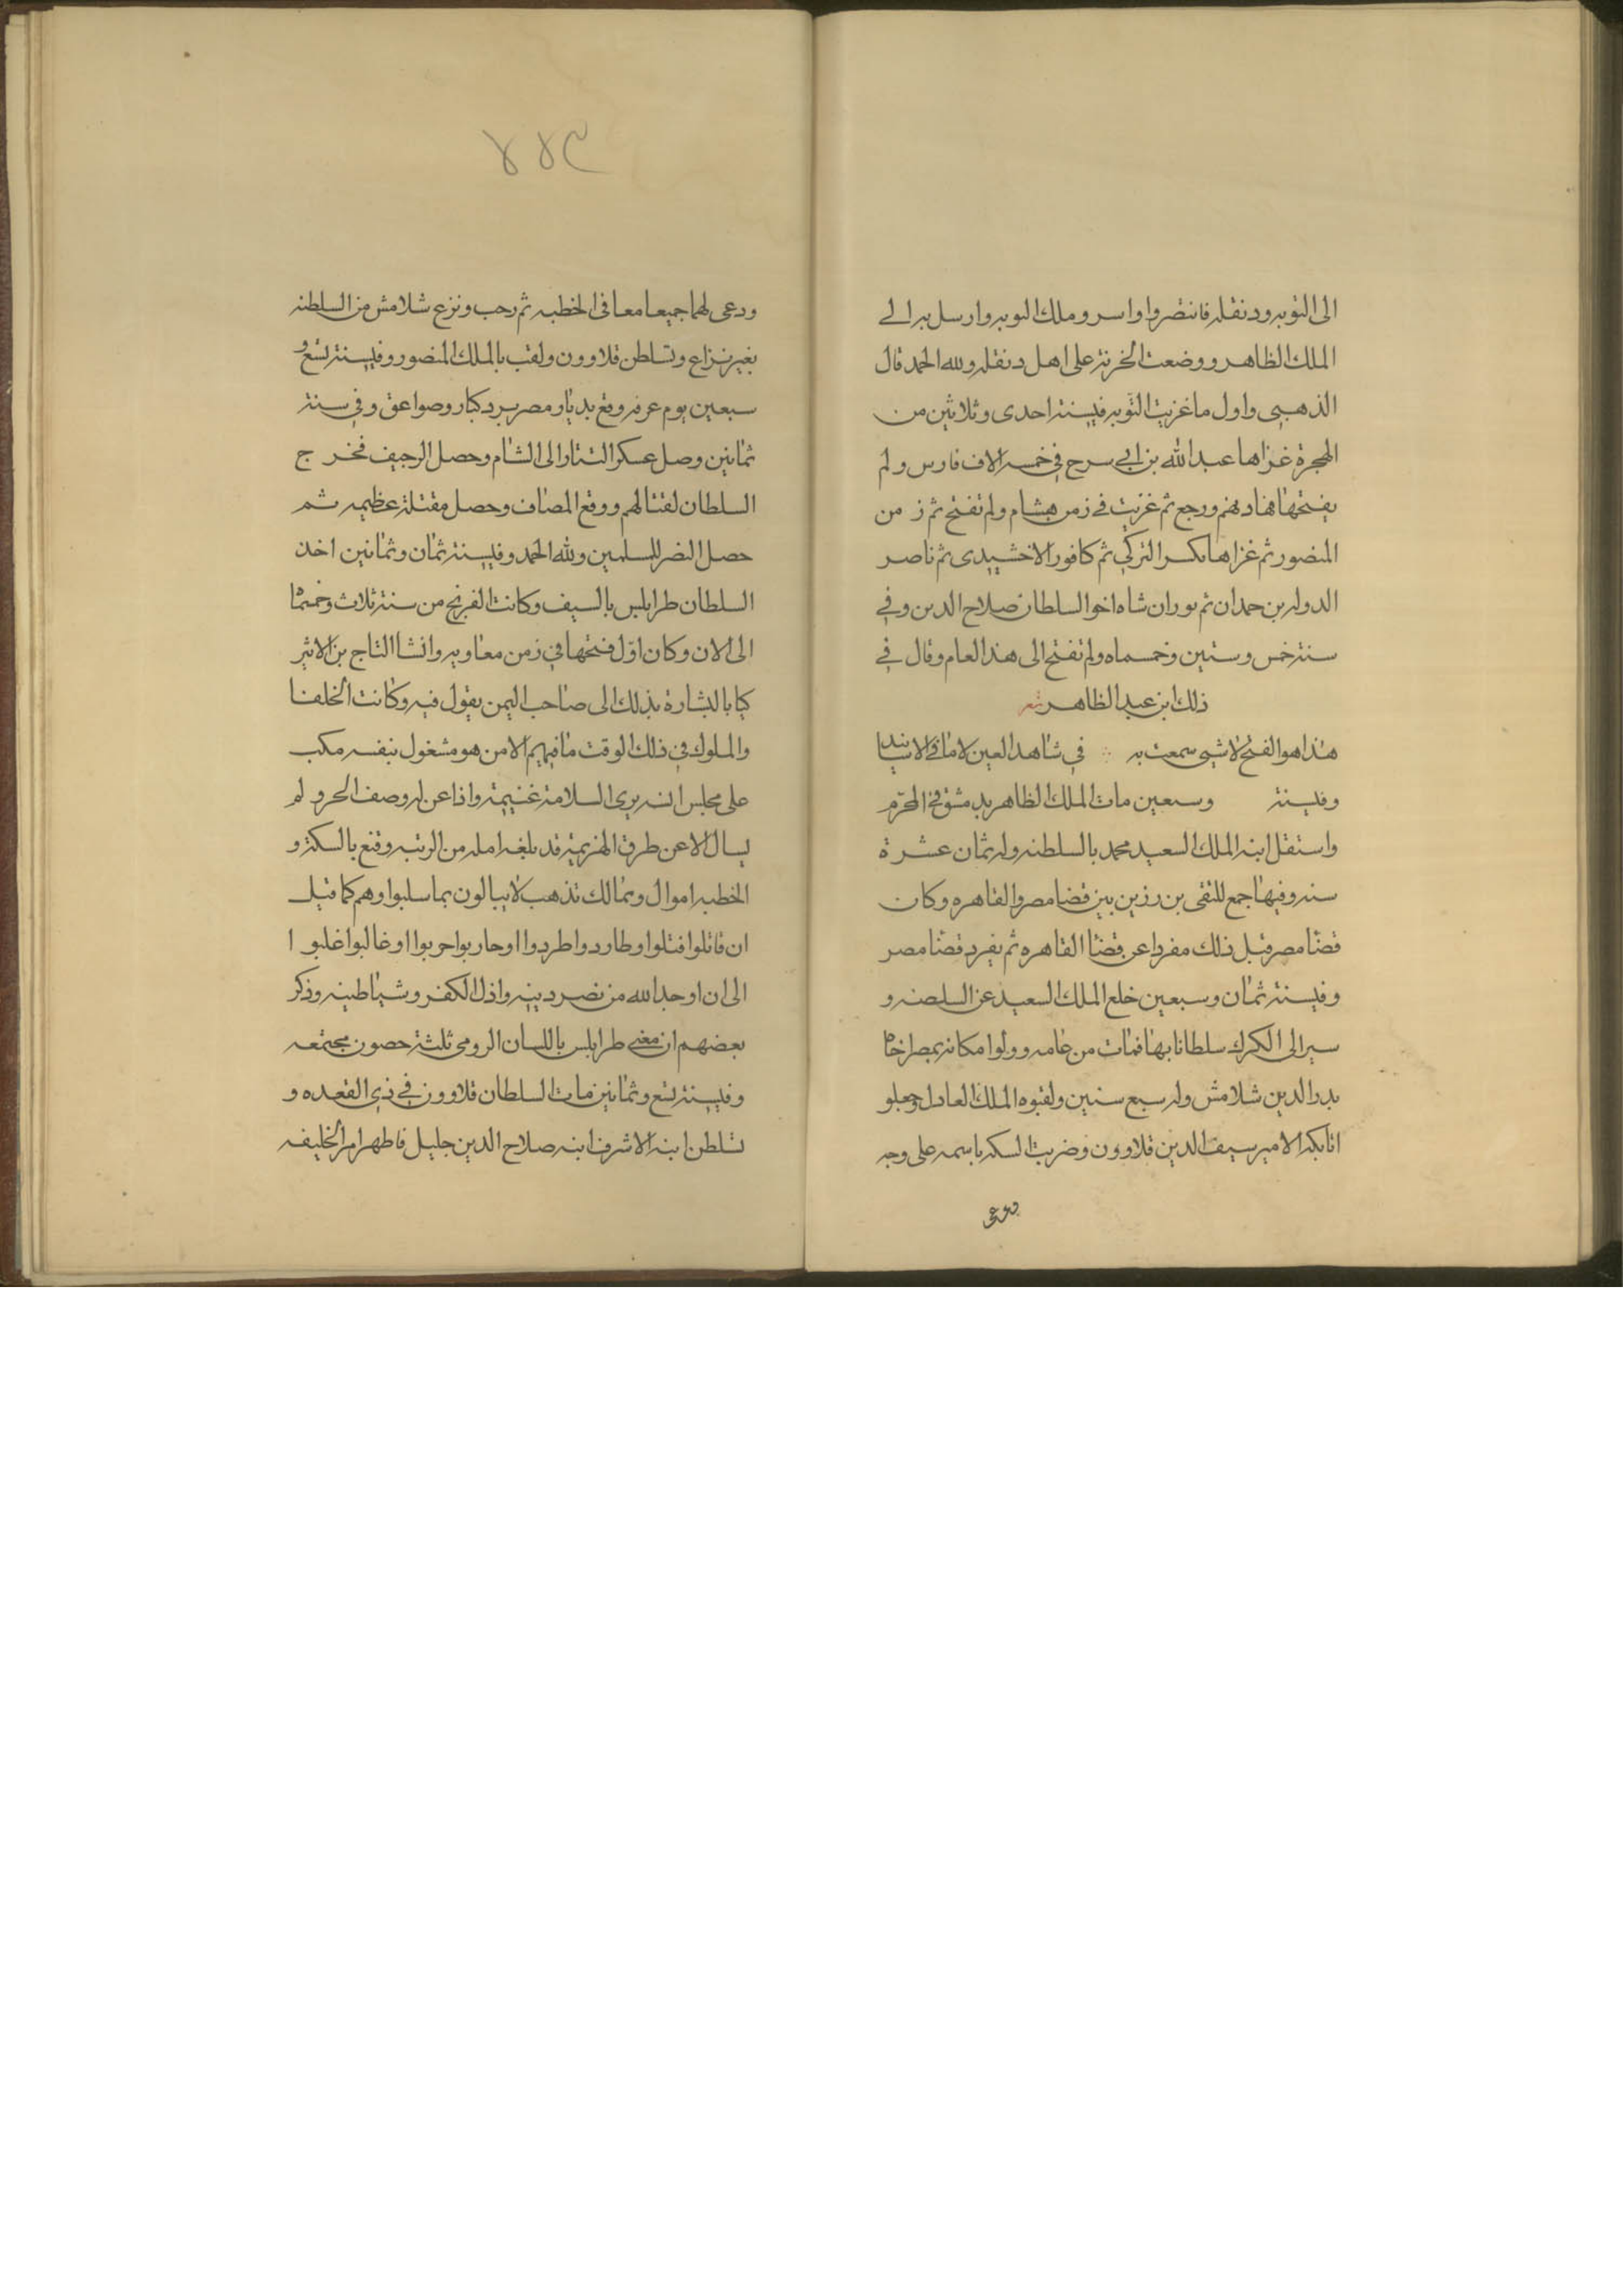 الى النوبه ودنقله فانتصروا واسرو ملك النوبه وارسل به الے
الملك الظاهر ووضعت الخرية على اهل دنقله ولله الحمد قال
الذهبى واول ما غزيت النوبه فے سنة احدى وثلاثين من
الهجرة غزاها عبد الله بن ابى سرح فى خمسه الاف فارس ولم
يفتحها فهادنهم ورجع ثم غزيت فے زمن هشام ولم تفتح ثم زمن
المنصور ثم غزاها تكين التركى ثم كافور الاخشيدى ثم ناصر
الدوله بن حمدان ثم توران شاه اخو السلطان صلاح الدين وفے
سنة خمس وستين وخمسماه ولم تفتح الى هذا العام وقال فے
ذلك ابن عبد الظاهر شعر
هذا هو الفتح لا شيى سمعت به في شاهد العين لا ما فے الاسانيد
وفے سنة وسبعين مات الملك الظاهر بدمشق فے المحرّم
واستقل ابنه الملك السعيد محمد بالسلطنه وله ثمان عشرة
سنه وفيها جمع للتقى بن رزين بين قضا مصر والقاهره وكان
قضا مصر قبل ذلك مفردا عن قضا القاهره ثم يفرد قضا مصر
وفے سنة ثمان وسبعين خلع الملك السعيد عن السلصنه و
سير الى الكرك سلطانا بها فمات من عامه وولوا مكانه بمصر اخاه
بدر الدين شلامش وله سبع سنين ولقبوه الملك العادل وجعلو
اتابكه الامير سيف الدين قلاوون وضربت السكه باسمه على وجه
ودعى
٤٤٣
ودعى لهما جميعا معا فى الخطبه ثم رجب ونزع شلامش من السلطنه
بغير نزاع وتسلطن قلاوون ولقب بالملك المنصور وفے سنة تسع و
سبعين يوم عرفه وقع بديار مصر برد كبار وصواعق وفى سنة
ثمانين وصل عسكر التتار الى الشام وحصل الرجيف فخرج
السلطان لقتالهم ووقع المصاف وحصل مقتلة عظيمه ثم
حصل النصر للمسلمين ولله الحمد وفے سنة ثمان وثمانين اخذ
السلطان طرابلس بالسيف وكانت الفرنج من سنة ثلاث وخمسما
الى الان وكان اوّل فتحها في زمن معاويه وانشا التاج بن الاثير
كتابا بالبشارة بذلك الى صاحب اليمن يقول فيه وكانت الخلفا
والملوك في ذلك الوقت ما فيهم الا من هو مشغول بنفسه مكب
على مجلس انسه يرى السلامة غنيمة واذا عن له وصف الحرو لم
يسال الا عن طرق الهزيمة قد بلغه امله من الرتبه وقنع بالسكة و
الخطبه اموال وممالك تذهب لا يبالون بما سلبوا وهم كما قيل
ان قاتلوا قتلوا وطاردوا طردوا او حاربوا حربوا او غالبوا غلبوا
الى ان اوجد الله من نصر دينه واذل الكفر وشياطينه وذكر
بعضهم ان معنى طرابلس باللسان الرومى ثلثة حصون مجتمعه
وفے سنة تسع وثمانين مات السلطان قلاوون فے ذي القعده و
تسلطن ابنه الاشرف ابنه صلاح الدين جليل فاظهر امر الخليفه